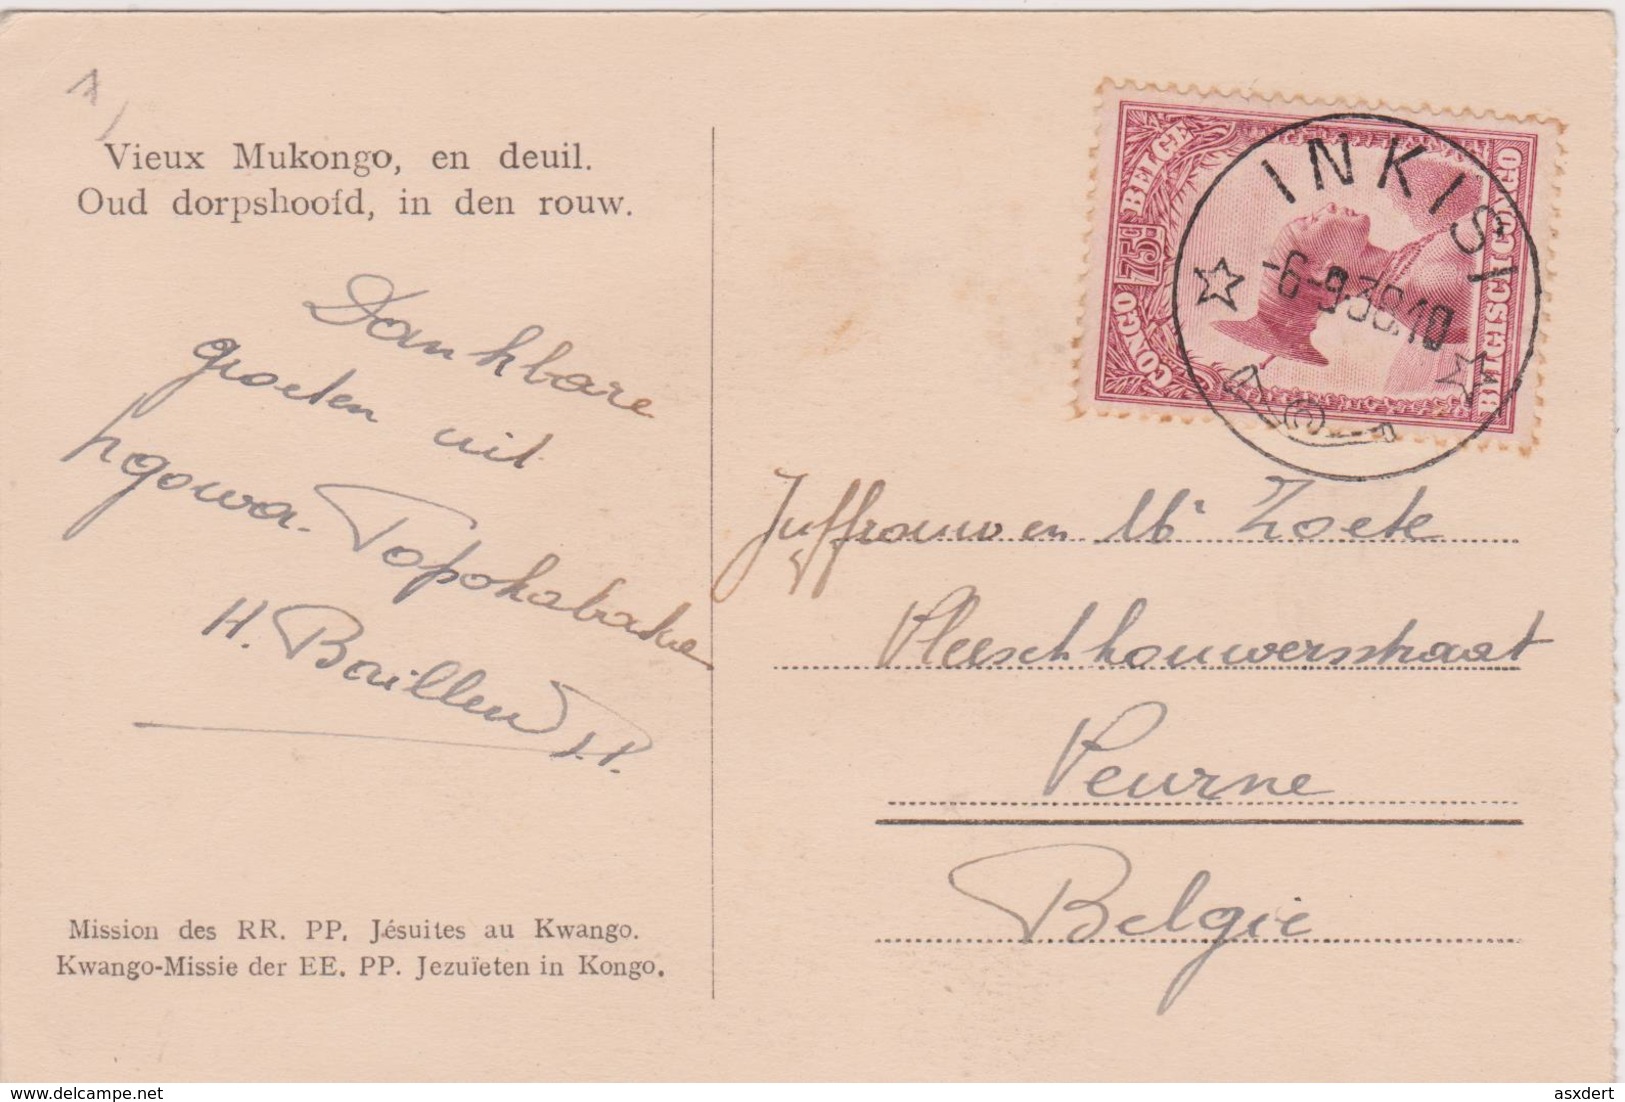 1
Vieux Mukongo, en deuil.
Oud dorpshoofd, in den rouw.
Dankbare
groeten uit
ngowa.
H. Baillen
Mission des RR. PP. Jésuites au Kwango.
Kwango-Missie der EE. PP. Jezuïeten in Kongo.
CONGO 75c BELGE
BELGISCH CONGO
INKISI
-6-9
Juffrouw en Mr Zoete
Vleeschhouwersstraat
Veurne
België
delcampe.net
asxdert